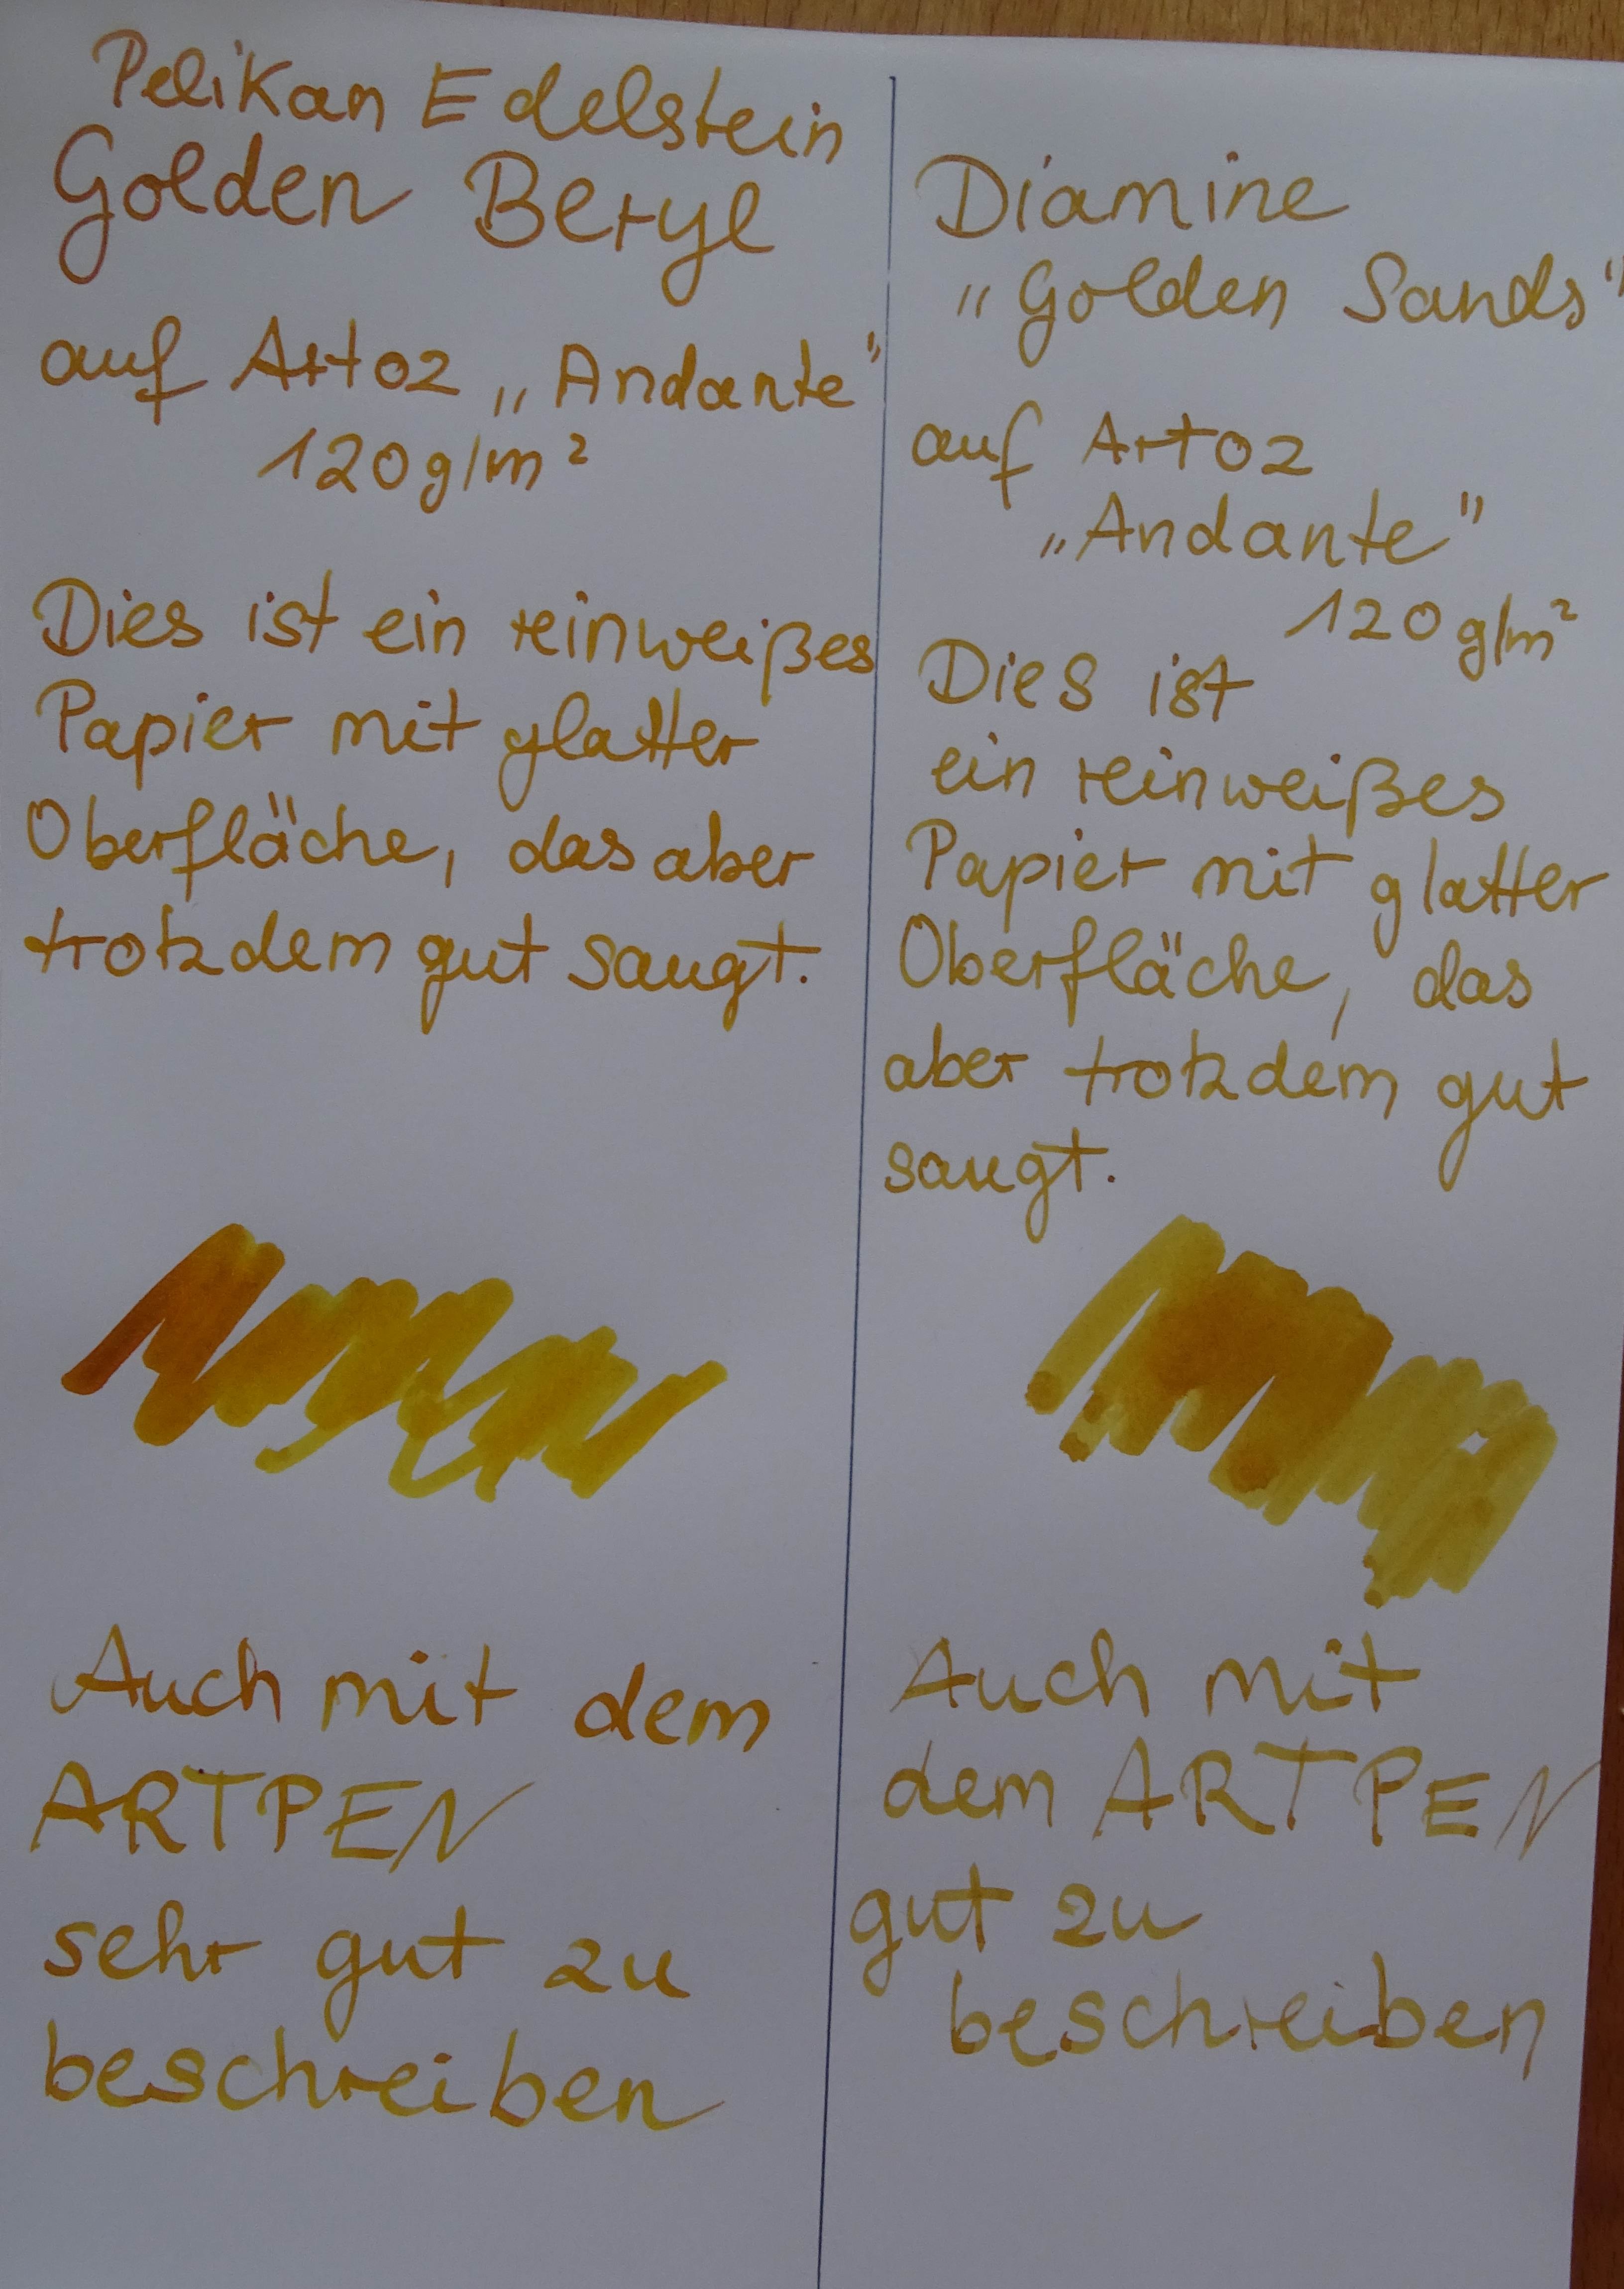 Pelikan Edelstein
Golden Beryl
auf Artoz „Andante"
120g/m²
Dies ist ein reinweißes
Papier mit glatter
Oberfläche, das aber
trotzdem gut saugt.
Auch mit dem
ARTPEN
sehr gut zu
beschreiben
Diamine
„Golden Sands"
auf Artoz
„Andante"
120g/m²
Dies ist
ein reinweißes
Papier mit glatter
Oberfläche, das
aber trotzdem gut
saugt.
Auch mit
dem ARTPEN
gut zu
beschreiben